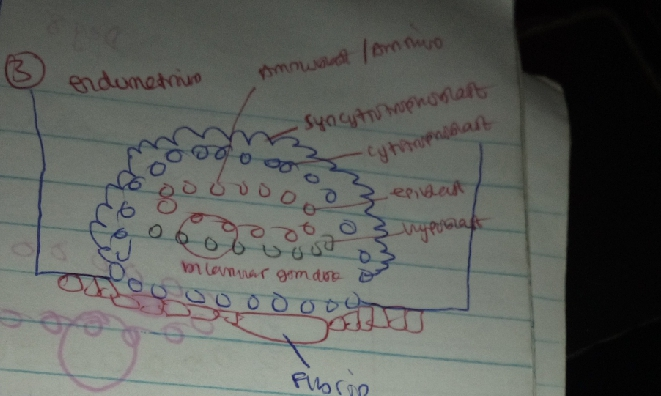 3
endometrio
Amnioblast / Amnios
syncytiotrophoblast
cytotrophoblast
epiblast
hypoblast
bilaminar germ disc
Fibrin